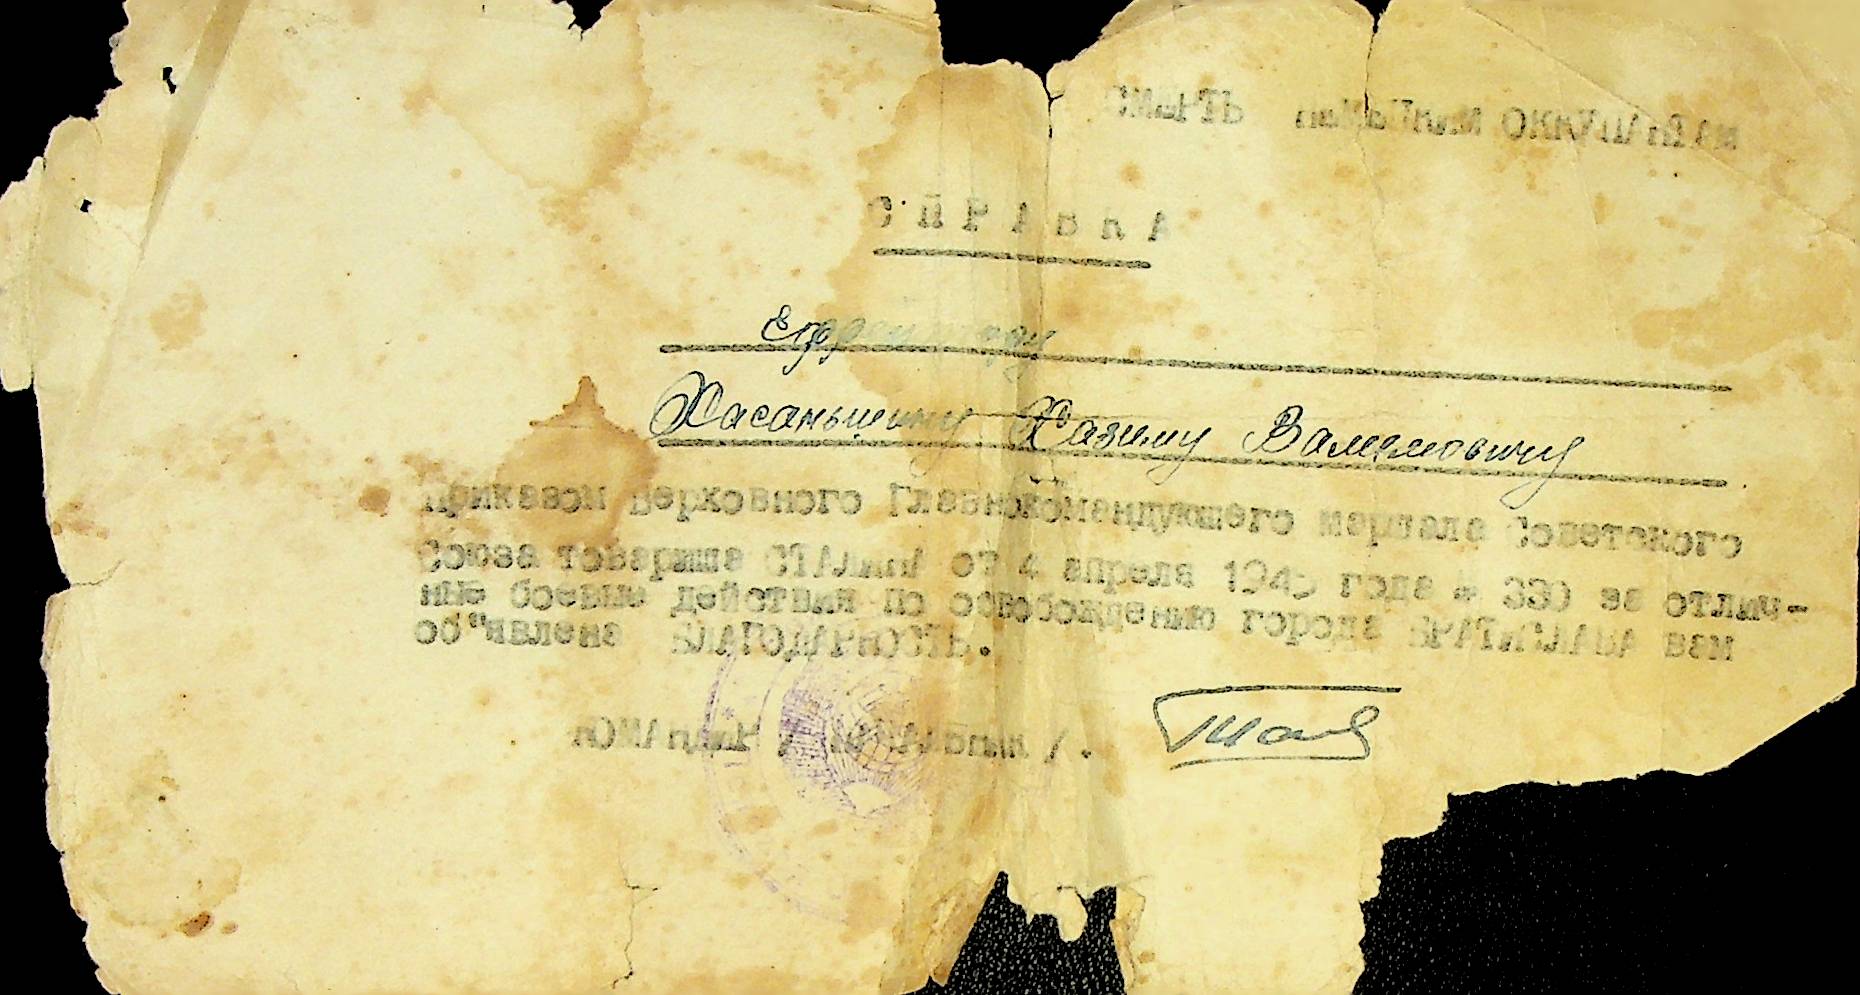 СМЕРТЬ немецким ОККУПАНТАМ
СПРАВКА
Ефрейтору
Хасаньшину Хазиму Валемовичу
Приказом Верховного Главнокомандующего маршала Советского
Союза товарища СТАЛИНА от 4 апреля 1945 года № 330 за отлич-
ные боевые действия по освобождению города БРАТИСЛАВА вам
об"явлена БЛАГОДАРНОСТЬ.
КОМАНДИР